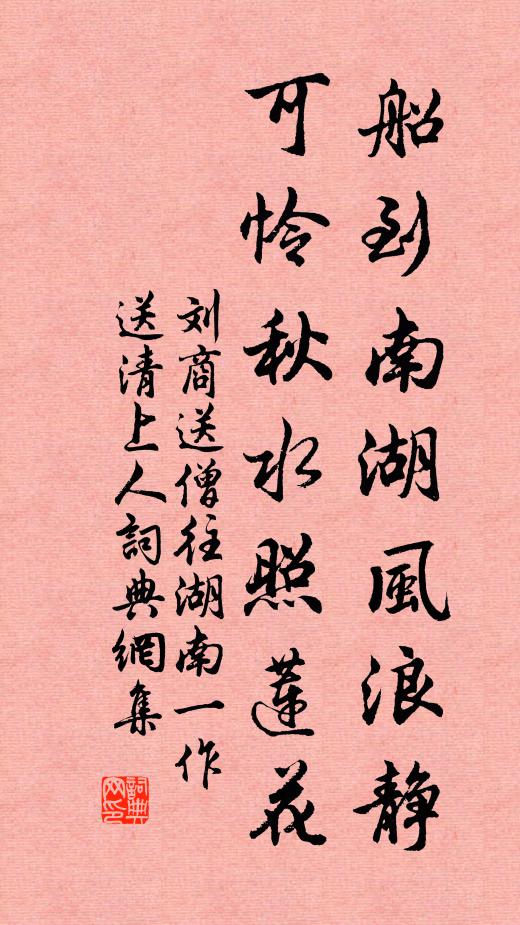 船到南湖風浪静
可怜秋水照蓮花
刘商送僧往湖南一作
送清上人詞典網集
詞典
网印